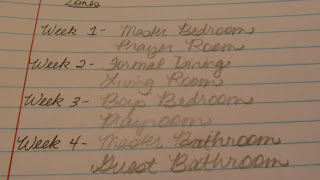 Zones
Week 1- Master Bedroom
Prayer Room
Week 2- Formal Dining
Living Room
Week 3- Boys Bedroom
Playroom
Week 4- Master Bathroom
Guest Bathroom